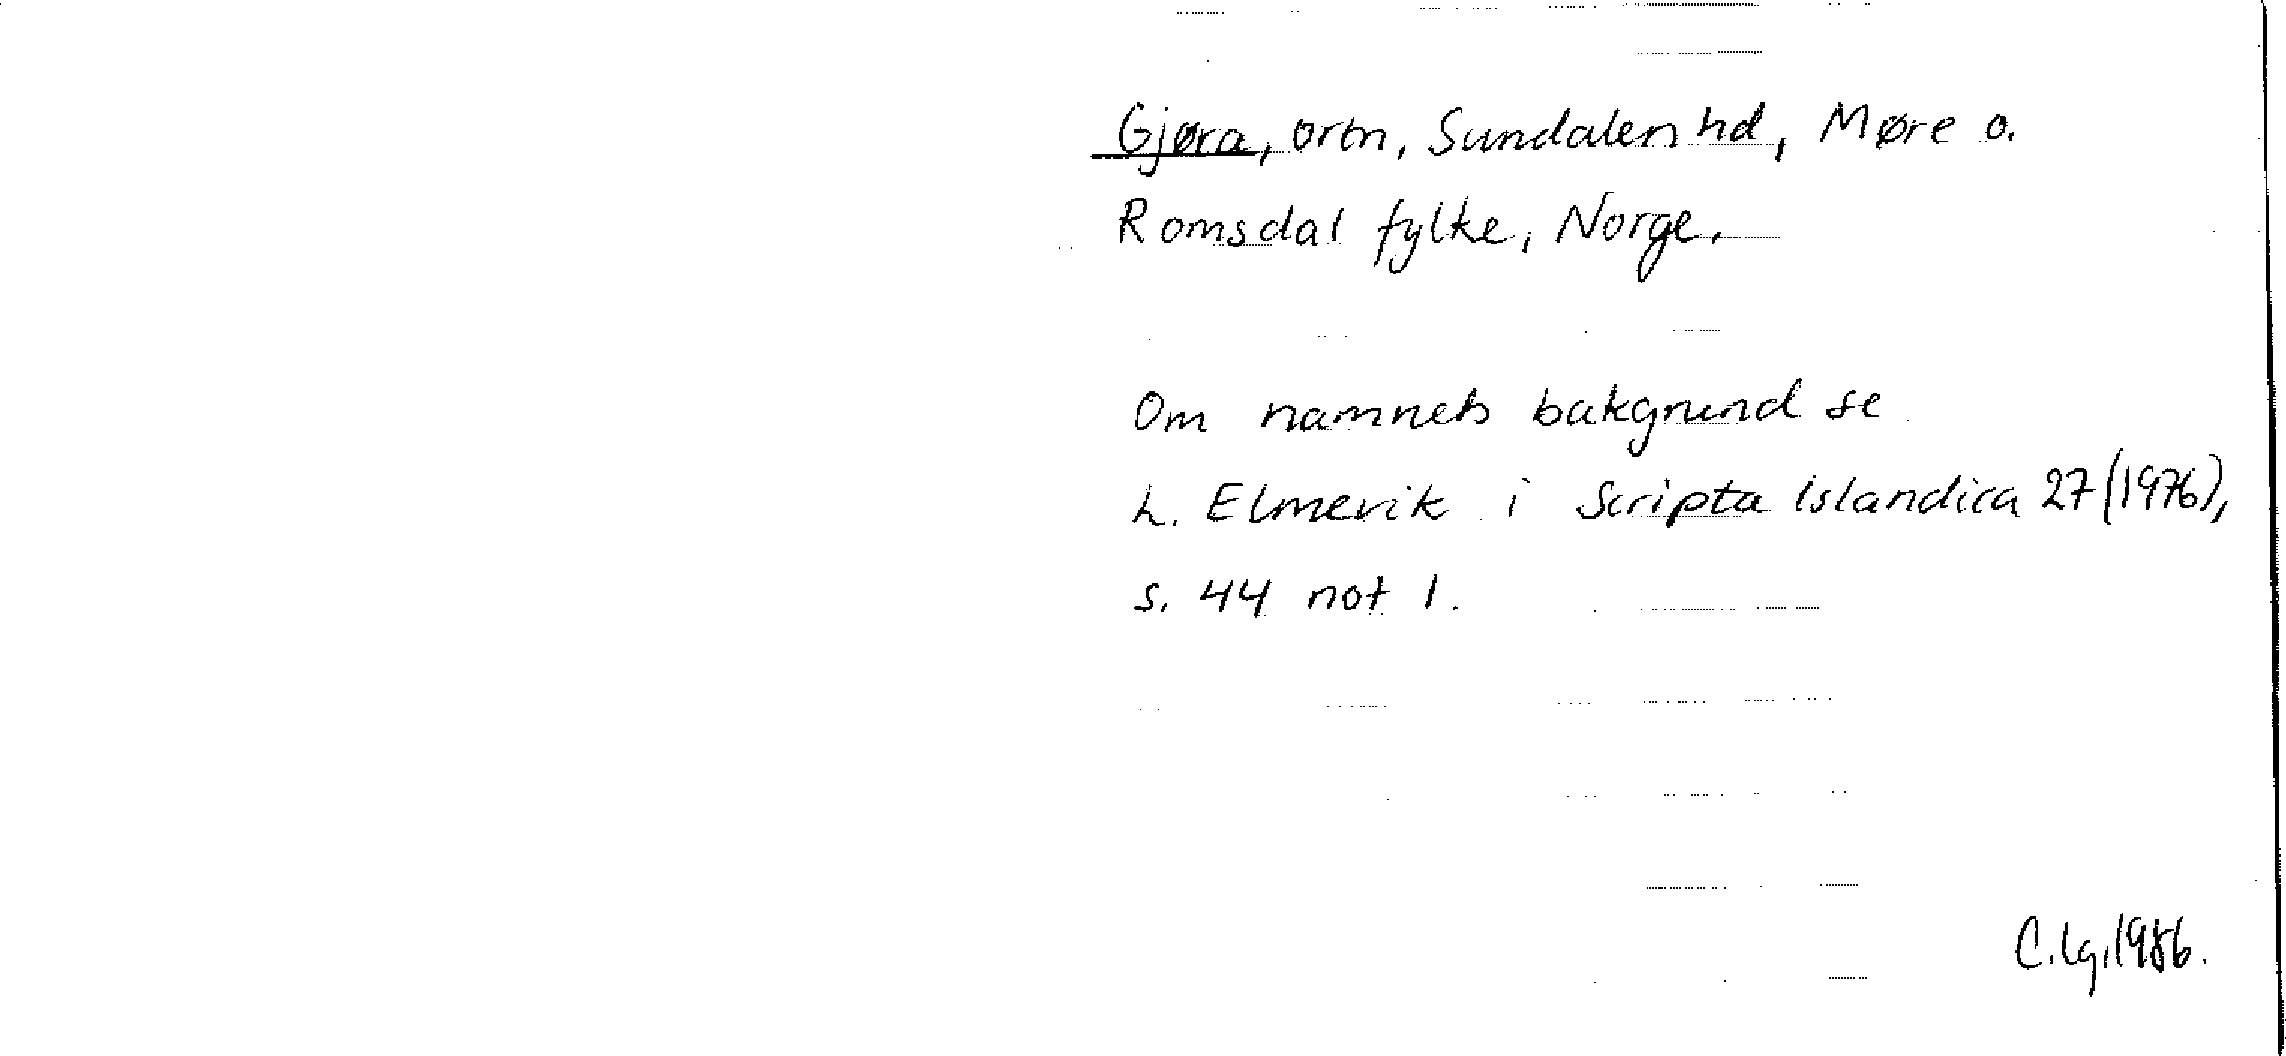 Gjøra, ortn, Sundalen hd, Møre o.
Romsdal fylke, Norge.
Om namnets bakgrund se
L. Elmevik i Scripta Islandica 27 (1976),
s. 44 not 1.
C.lg.1986.